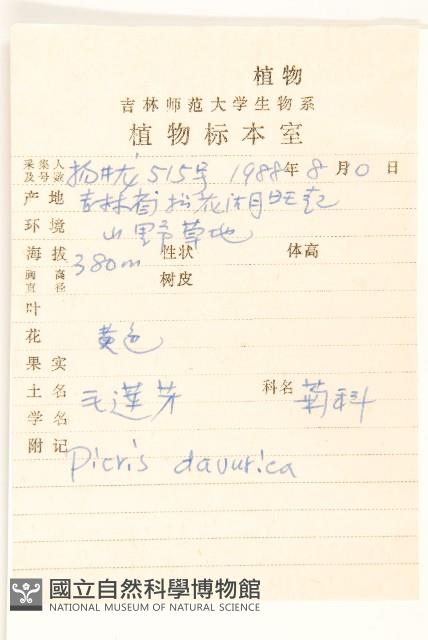 植物
吉林师范大学生物系
植物标本室
采集人及号数 515号 1988年8月0日
产地 吉林省松花湖
环境 山野草地
海拔 380m 性状 体高
胸高直径 树皮
叶
花 黄色
果实
土名 毛蓮芽 科名 菊科
学名
附记 Picris davurica
國立自然科學博物館
NATIONAL MUSEUM OF NATURAL SCIENCE